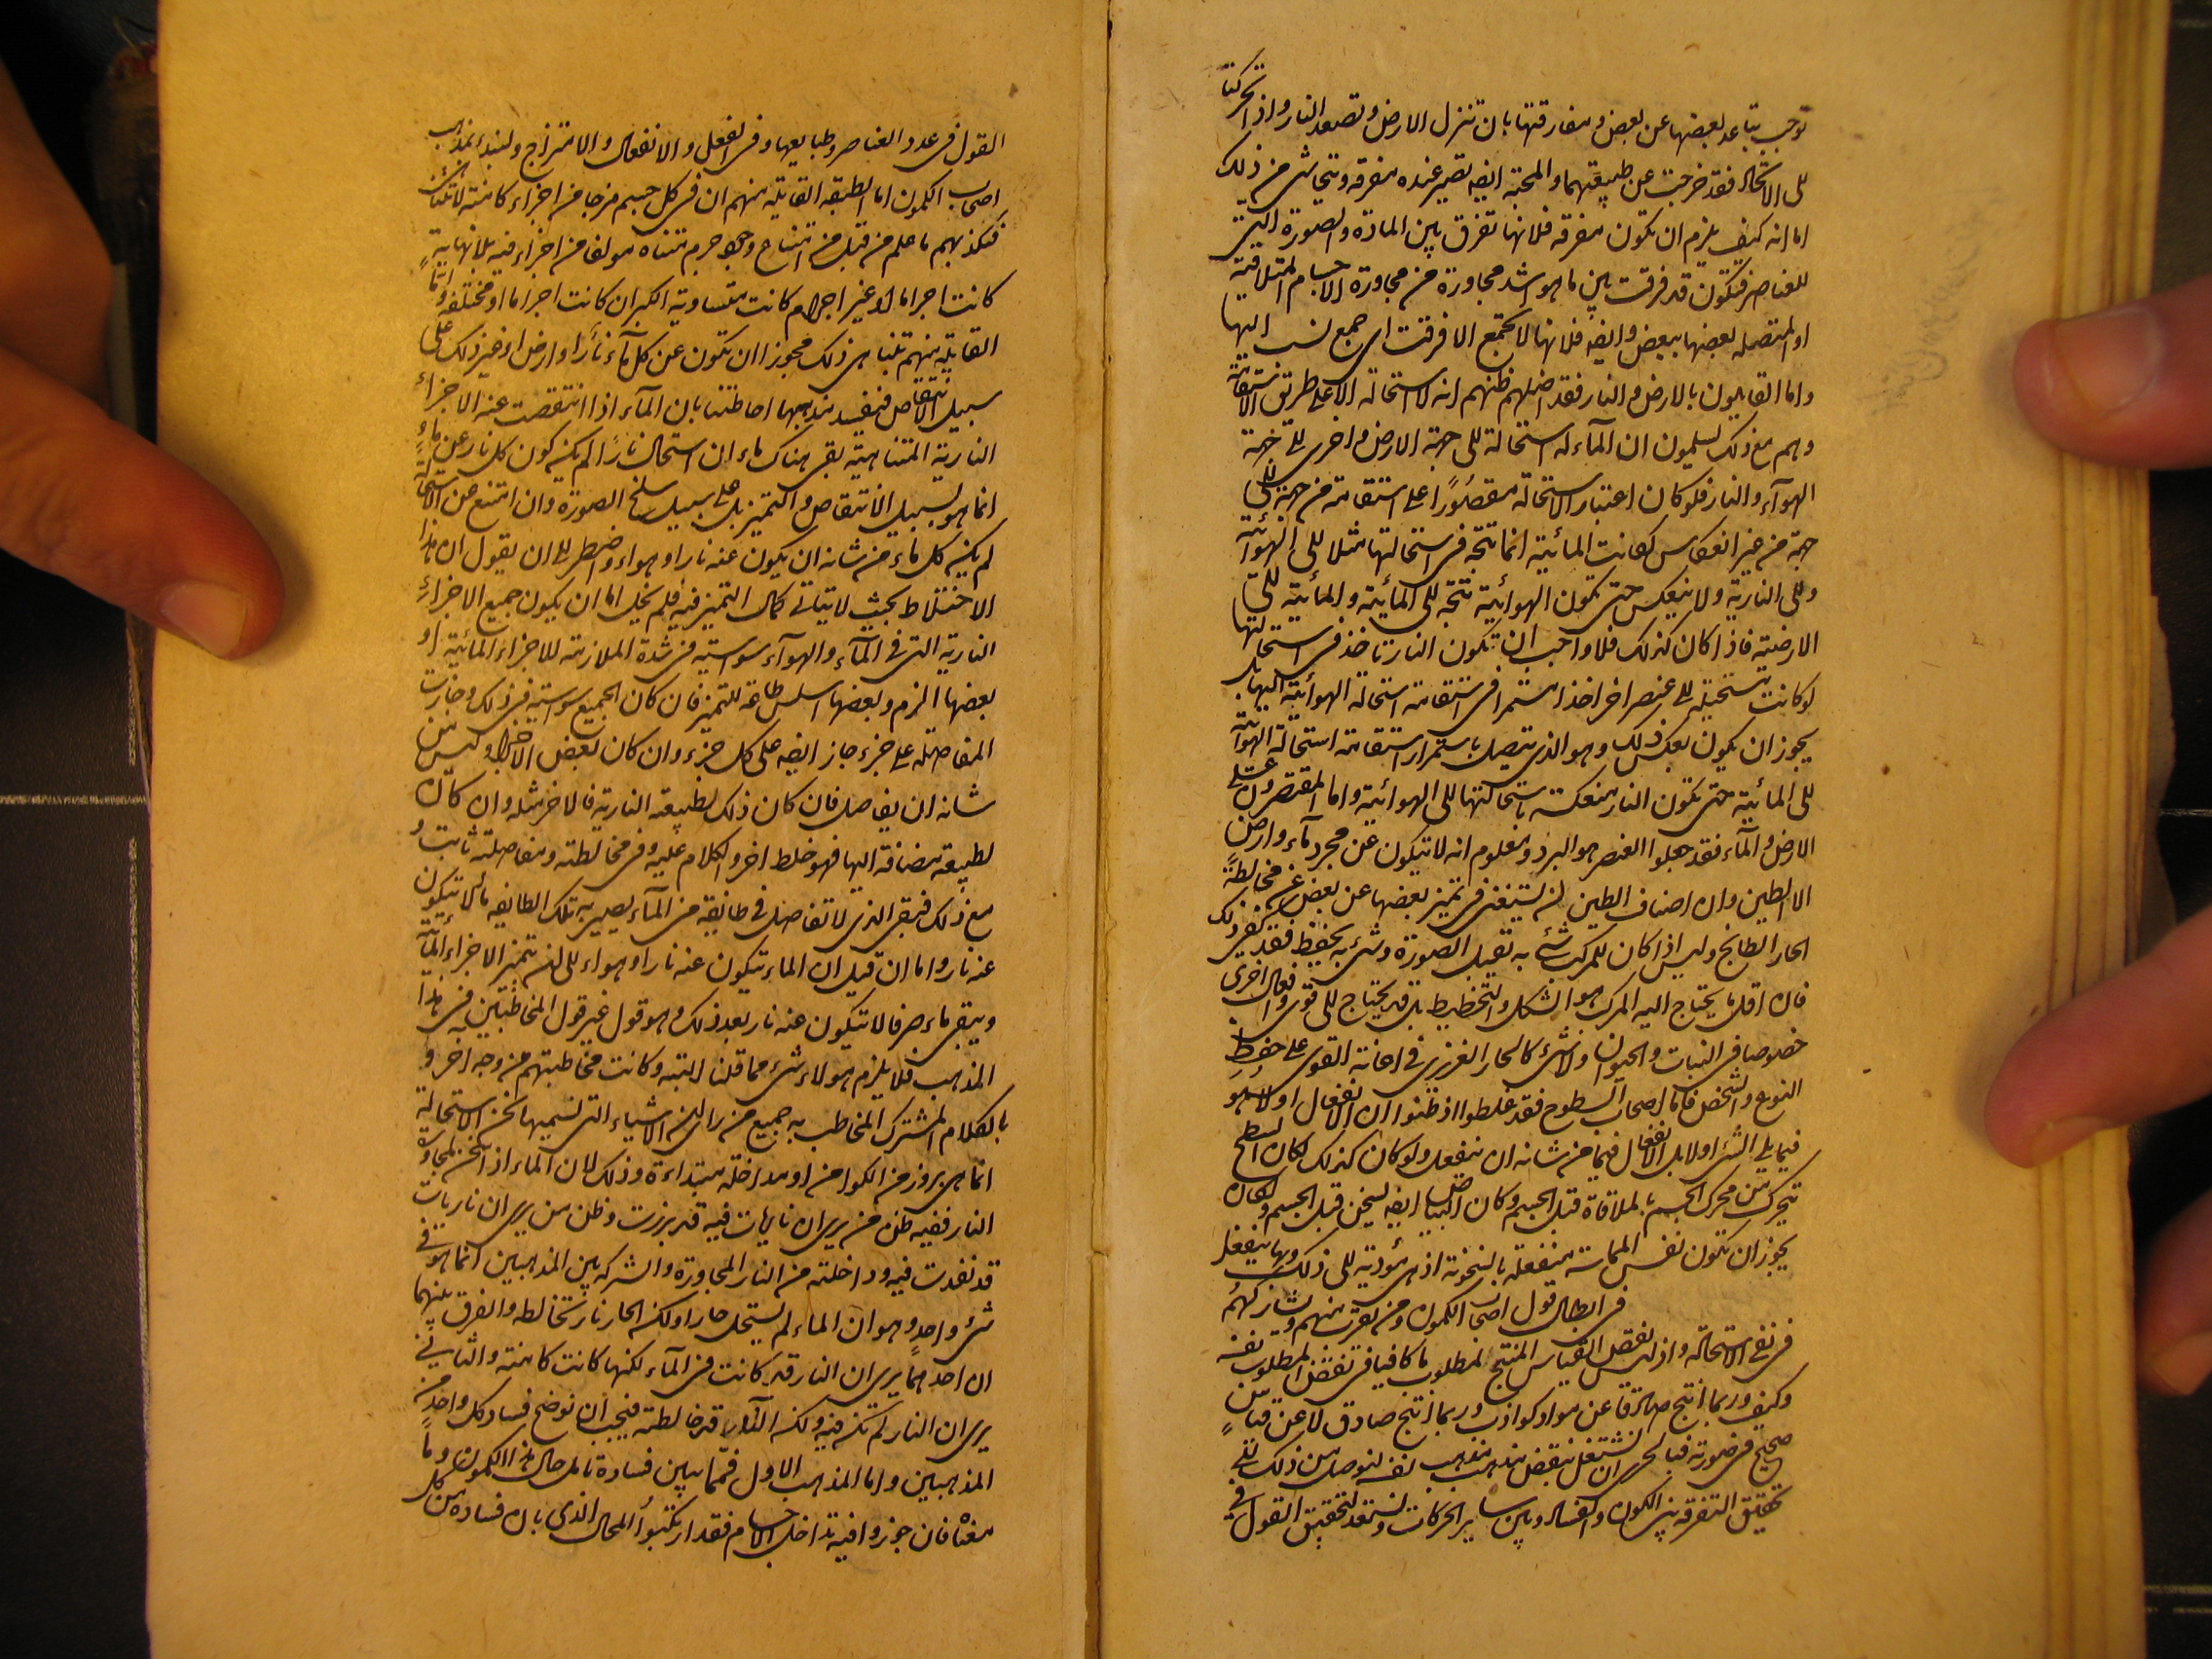 توجب تباعد بعضها عن بعض ومفارقتها بان تنزل الارض وتصعد النار واذا تحركتا
الى الاتحاد فقد خرجت عن طبيعتهما والمحبة ايضه تصير عنده مفرقه ويتحاشى من ذلك
اما انه كيف يلزم ان تكون مفرقه فلانها تفرق بين المادة والصورة التى
للعناصر فتكون قد فرقت بين ما هو اشد مجاورة من مجاورة الاجسام المتلاقية
او المتصله بعضها ببعض وايضه فلانها لا تجمع الا فرقت اى جمع نسب اليها
واما القايلون بالارض والنار فقد اضلهم ظنهم انه لا استحالة الا على طريق الاستقامة
وهم مع ذلك يسلمون ان المآء له استحالة الى جهة الارض واخرى الى جهة
الهوآء والنار فلو كان اعتبار الاستحالة مقصورًا على استقامة من جهة الى
جهة من غير انعكاس لكانت المائية انما تتجه فى استحالتها مثلا الى الهوائية
والى النارية ولا ينعكس حتى تكون الهوائية تتجه الى المائية والمائية الى
الارضية فاذا كان كذلك فلا واجب ان تكون النار تاخذ فى استحالتها
لو كانت مستحيلة الى عنصر اخر اخذا مستمرا فى استقامة استحالة الهوائية اليها بل
يجوز ان يكون بعكس ذلك وهو الذى يتصل باستمرار استقامة استحالة الهوائية
الى المائية حتى تكون النار منعكسة باستحالتها الى الهوائية واما المقتصرون على
الارض والمآء فقد جعلوا العنصر هو البرد ومعلوم انه لا تتكون عن مجرد مآء وارض
الا الطين وان اصناف الطين لن تستغنى فى تميز بعضها عن بعض عن مخالطة
الحار الطابخ وليس اذا كان للمركب شئ به تقبل الصورة وشئ به يحفظ فقد كفى ذلك
فان اقل ما يحتاج اليه المركب هو الشكل والتخطيط بل قد يحتاج الى قوى وافعال اخرى
خصوصا فى النبات والحيوان ولا شئ كالحار الغريزى فى اعانة القوى على حفظ
النوع والشخص فاما اصحاب السطوح فقد غلطوا اذ ظنوا ان الانفعال اولا هو
فيما يلى الشئ اولا بل الانفعال فيما من شانه ان ينفعل ولو كان كذلك لكان السطح
يتحرك من محرك الجسم بالملاقاة قبل الجسم وكان البياض ايضه يسخن قبل الجسم ولكان
يجوز ان تكون نفس المماسة منفعلة بالسخونة اذ هى مؤدية الى ذلك وبها ينفعل
فى ابطال قول اصحاب الكمون ومن يقرب منهم ويشاركهم
فى نفى الاستحالة واذ ليس نقض القياس المنتج لمطلوب ما كافيا فى نقض المطلوب نفسه
وكيف وربما انتج صادقا عن مواد كواذب وربما انتج صادق لا عن قياس
صحيح فى صورته فبالحرى ان نشتغل بنقض مذهب مذهب نفسه لنتوصل من ذلك الى
تحقيق التفرقه بين الكون والفساد وبين ساير الحركات ونستعد لتحقيق القول فى
القول فى عدد العناصر وطبايعها وفى الفعل والانفعال والامتزاج ولنبدء بمذهب
اصحاب الكمون اما الطبقه القايلة منهم ان فى كل جسم مزجا من اجزاء كامنة لا تتناهى
فتكذبهم ما علم من قبل من امتناع وجود جرم متناه مولف من اجزاء فيه بلا نهاية
كانت اجراما او غير اجرام كانت متساوية الكبر ان كانت اجراما او مختلفه واما
القايلة منهم بتناهى ذلك مجوزا ان تكون عن كل مآء نارا وارض او غير ذلك على
سبيل الانتقاص فيفسد مذهبها احاطتنا بان المآء اذا انتقصت عنه الاجزاء
النارية المتناهية بقى هناك ماء ان استحال نارًا لم يكن كون كل نار عن ماءٍ
انما هو بسبيل الانتقاص والتميز بل على سبيل سلخ الصورة وان امتنع عن الاستحالة
لم يكن كل ماء من شانه ان يكون عنه نار او هواء واضطر الى ان يقول ان هذا
الاختلاط بحيث لا يتاتى كمال التميز فيه فلم يخل اما ان يكون جميع الاجزاء
النارية التى فى المآء والهوآء سواسية فى شدة الملازمة للاجزاء المائية او
بعضها الزم وبعضها اسلس طاعة للتميز فان كان الجميع سواسية فى ذلك وجازت
المفاصلة على جزء جاز ايضه على كل جزء وان كان بعض الاجزاء ليس من
شانه ان يفاصل فان كان ذلك لطبيعة النارية فالاخر مثله وان كان
لطبيعة مضافة اليها فهو خلط اخر والكلام عليه وفى مخالطته ومفاصلته ثابت و
مع ذلك فيبقى الذى لا تفاصل فى طايفة من المآء يصير به تلك الطايفه ماء لا تتكون
عنه نار واما ان قيل ان الماء تتكون عنه نار او هواء الى ان تتميز الاجزاء المائية
ويبقى ماء صرفا لا تتكون عنه نار بعد ذلك وهو قول غير قول المخاطبين فى هذا
المذهب فلا يلزم هولاء شئ مما قلنا البته وكانت مخاطبتهم من وجه آخر و
بالكلام المشترك المخاطب به جميع من راى ان الاشياء التى نسميها نحن الاستحالة
انما هى بروز من الكوامن او مداخلة مبتداءة وذلك لان الماء اذا سخن لمجاورة
النار ففيه ظن من يرى ان ناريات فيه قد برزت وظن من يرى ان ناريات
قد نفذت فيه وداخلته من النار المجاورة والشركه بين المذهبين انما هو فى
شئ واحد وهو ان الماء لم يستحل حارا ولكن الحار نار تخالطه والفرق بينهما
ان احدهما يرى ان النار قد كانت فى المآء لكنها كانت كامنة والثانى
يرى ان النار لم تكن فيه ولكن الآن قد خالطته فيجب ان نوضح فساد كل واحد من
المذهبين واما المذهب الاول فمما يبين فساده تامل حال هذا الكمون وما
معناه فان جوزوا فيه تداخل الاجسام فقد ارتكبوا المحال الذى بان فساده من كل